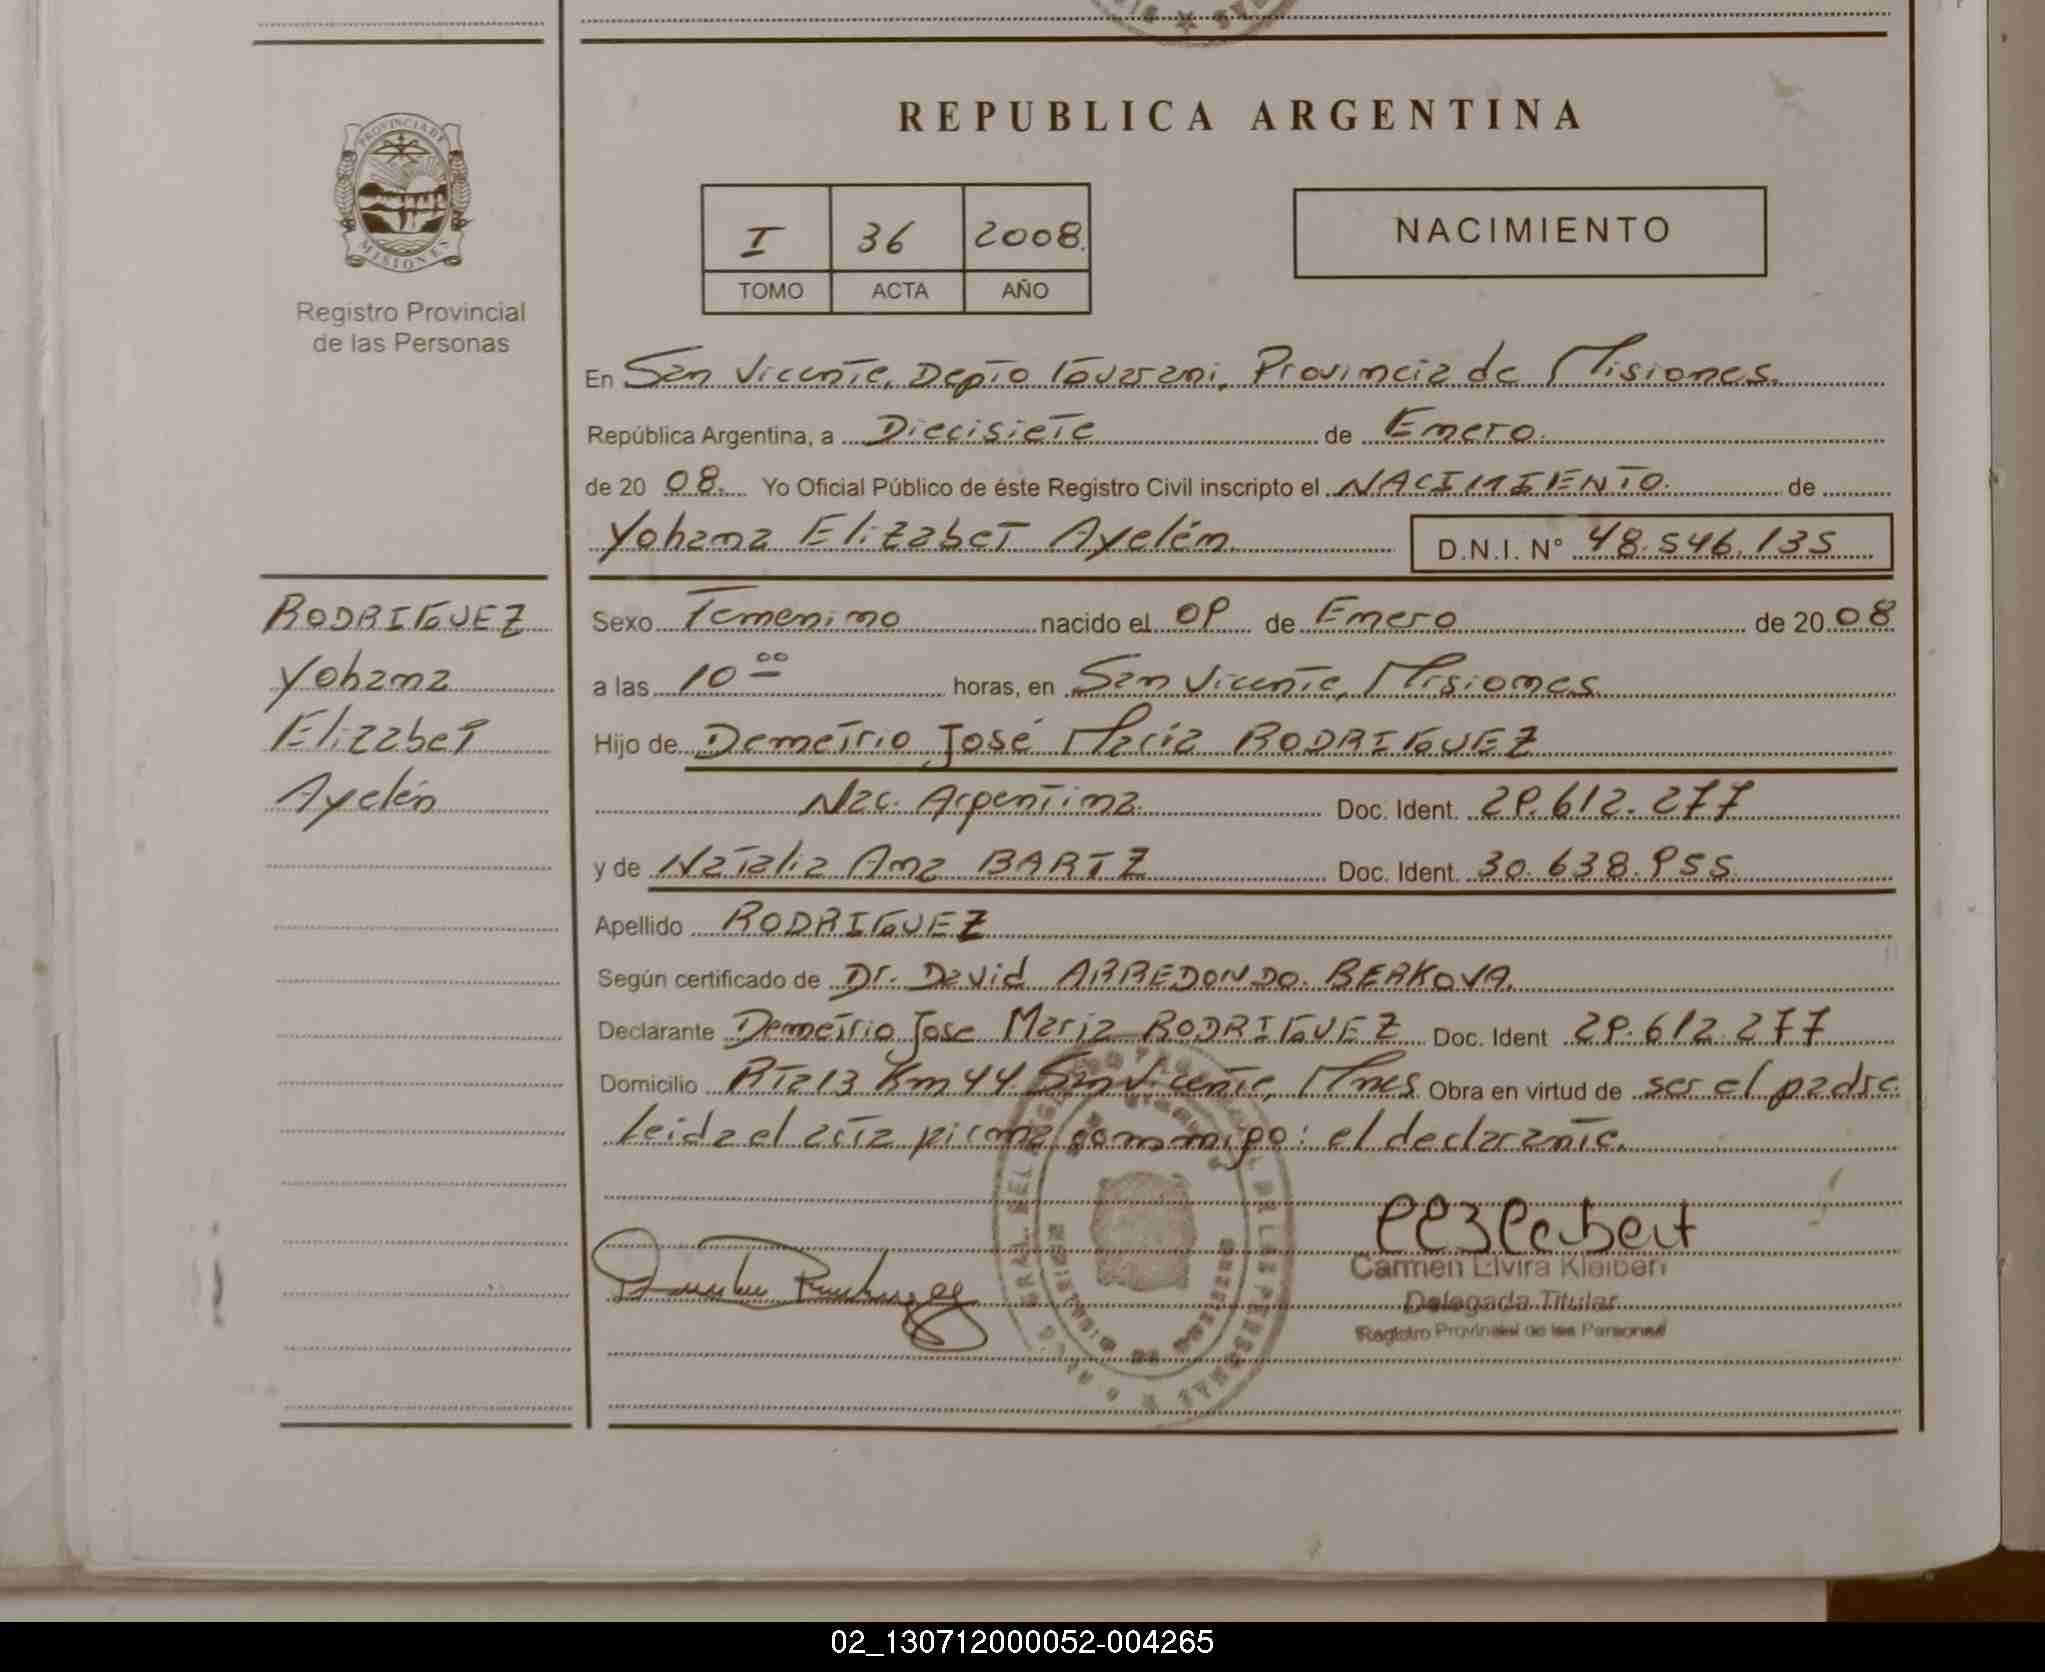 REPUBLICA ARGENTINA
PROVINCIA DE
MISIONES
Registro Provincial
de las Personas
I 36 2008.
TOMO ACTA AÑO
NACIMIENTO
En San Vicente, Depto Guarani, Provincia de Misiones.
República Argentina, a Diecisiete de Enero.
de 20 08. Yo Oficial Público de éste Registro Civil inscripto el NACIMIENTO. de
Yohana Elizabet Ayelén. D.N.I. N° 48.546.135
RODRIGUEZ
Yohana
Elizabet
Ayelén
Sexo Femenino nacido el 09 de Enero de 20 08
a las 10 00 horas, en San Vicente, Misiones
Hijo de Demetrio José Maria RODRIGUEZ
Nac. Argentina. Doc. Ident. 29.612.277
y de Natalia Ana BARTZ Doc. Ident. 30.638.955.
Apellido RODRIGUEZ
Según certificado de Dr. David ARREDONDO. BERKOVA.
Declarante Demetrio Jose Maria RODRIGUEZ Doc. Ident 29.612.277
Domicilio Rta 13 Km 44. San Vicente, Mnes Obra en virtud de ser el padre.
Leida el acta firma conmigo: el declarante.
Carmen Elvira Kleibert
Delegada Titular
Registro Provincial de las Personas
02_130712000052-004265